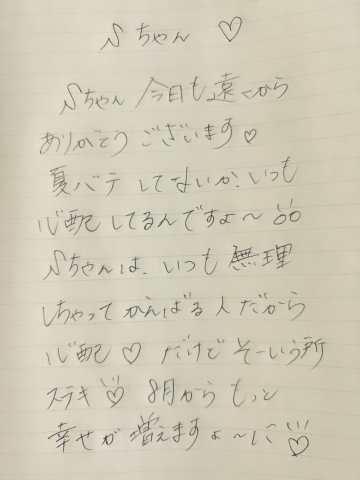 Sちゃん ♡
Sちゃん 今日も遠くから
ありがとう ございます♡
夏バテ してないか、いつも
心配 してるんですよ〜
Sちゃんは、いつも 無理
しちゃって がんばる人だから
心配 ♡ だけど そーいう所
ステキ♡ 8月から もっと
幸せが 増えますよ〜に♡